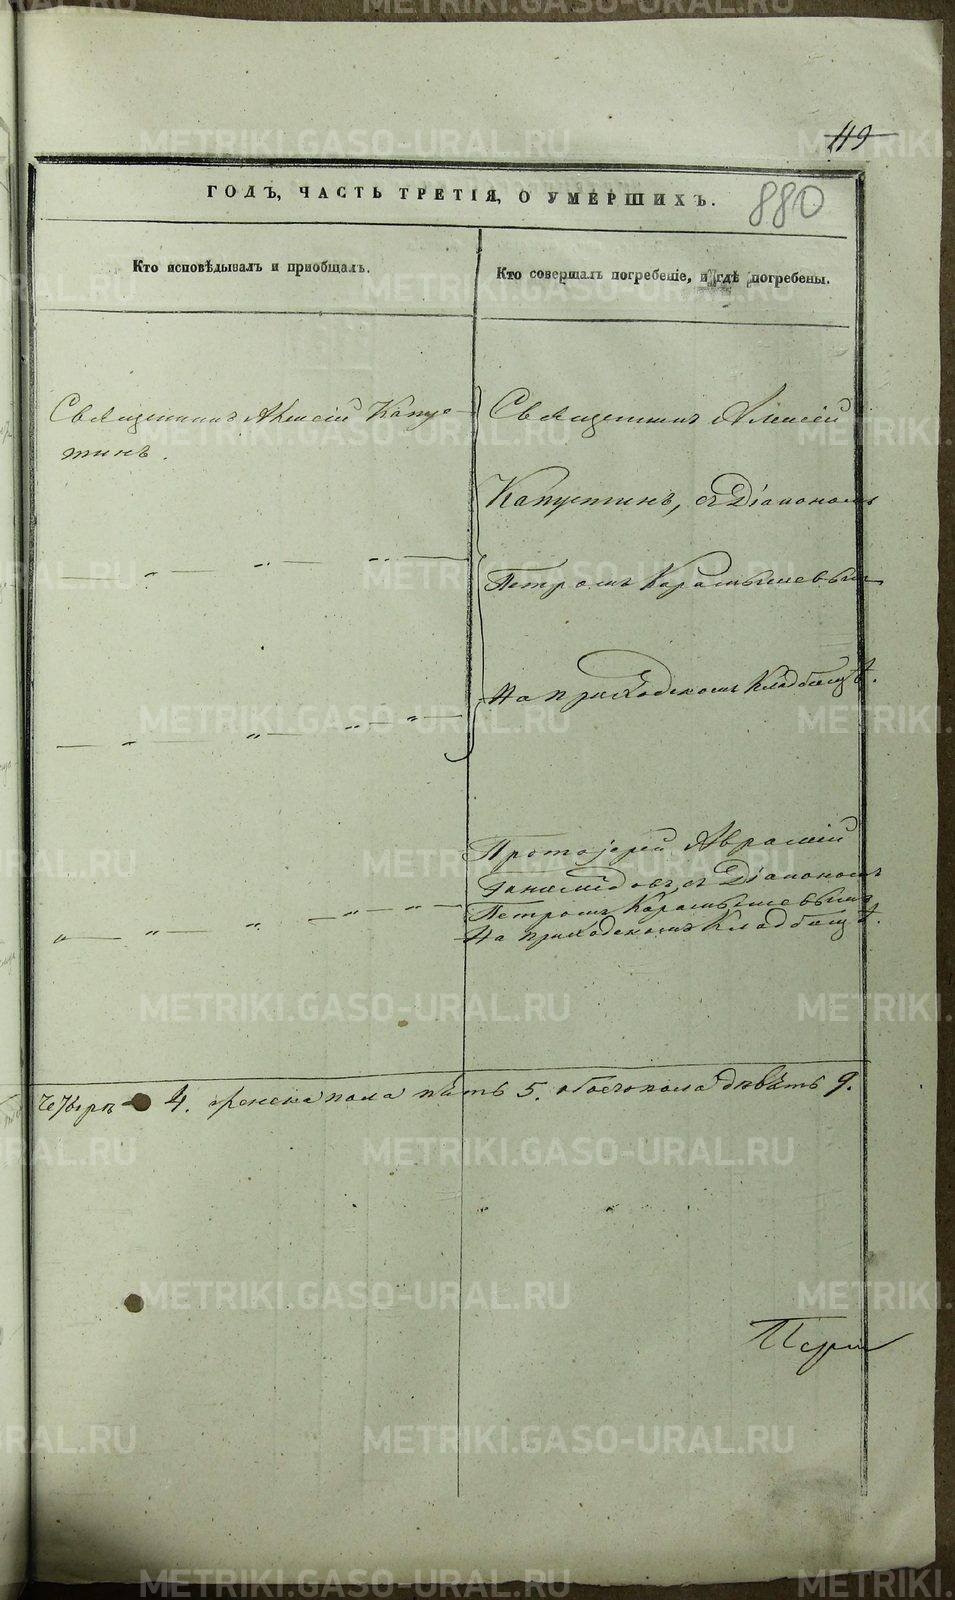 119
ГОДЪ, ЧАСТЬ ТРЕТІЯ, О УМЕРШИХЪ.
880
Кто исповѣдывалъ и пріобщалъ.
Кто совершалъ погребеніе, и гдѣ погребены.
Священникъ Алексій Капус-
тинъ.
Священникъ Алексій
Капустинъ, съ Діакономъ
Петромъ Карамышевымъ
На приходскомъ Кладбищѣ.
Протоіерей Авраамій
съ Діакономъ
Петромъ Карамышевымъ
На приходскомъ Кладбищѣ.
четыре 4. женска пола пять 5. обоего пола девять 9.
METRIKI.GASO-URAL.RU